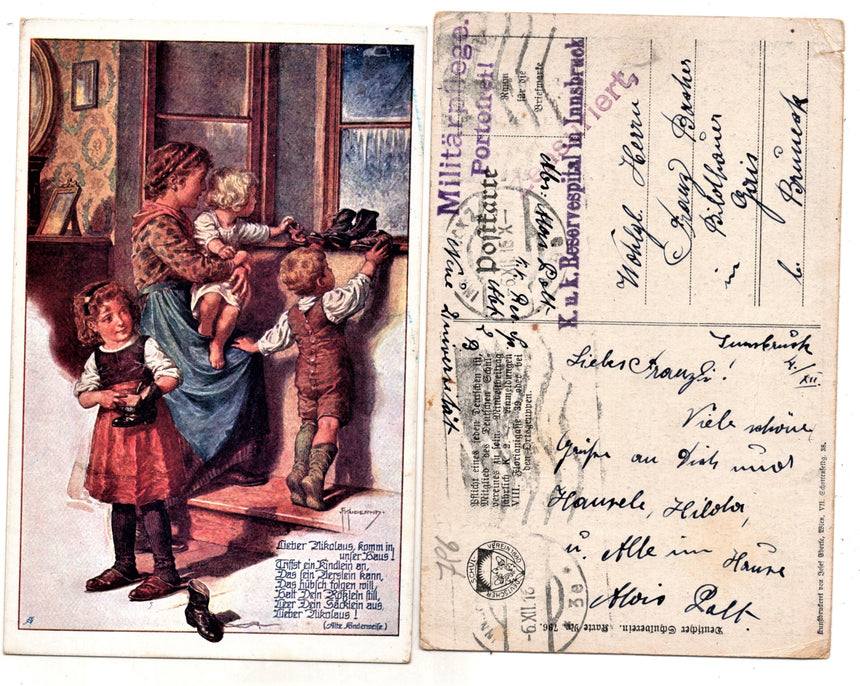 Lieber Nikolaus, komm in
unser Haus!
Triffst ein Kindlein an,
Das sein Verslein kann,
Das hübsch folgen will,
Halt Dein Rößlein still,
Leer Dein Säcklein aus,
Lieber Nikolaus!
(Alte Kinderweise.)
Militärpflege.
Portofrei!
K. u. k. Reservespital in Innsbruck
Postkarte
Raum
für die
Briefmarke
Wohlgb. Herrn
Franz
Bildhauer
in
Gais
b. Bruneck
Abs. Alois Palt
Neue Universität
Pflicht eines jeden Deutschen ist,
Mitglied des Deutschen Schul-
vereines zu sein. Mindestbeitrag
jährlich K 2.—. Anmeldungen
VIII. Floriangasse 39, oder bei
den Ortsgruppen.
Innsbruck
4./XII
Liebes Franzl!
Viele schöne
Grüße an Dich und
Hansele, Hilda,
u. Alle im Hause
Alois Palt
796
Deutscher Schulverein. Karte Nr. 796.
Kunstdruckerei von Josef Eberle, Wien, VII. Schottenfeldg. 38.